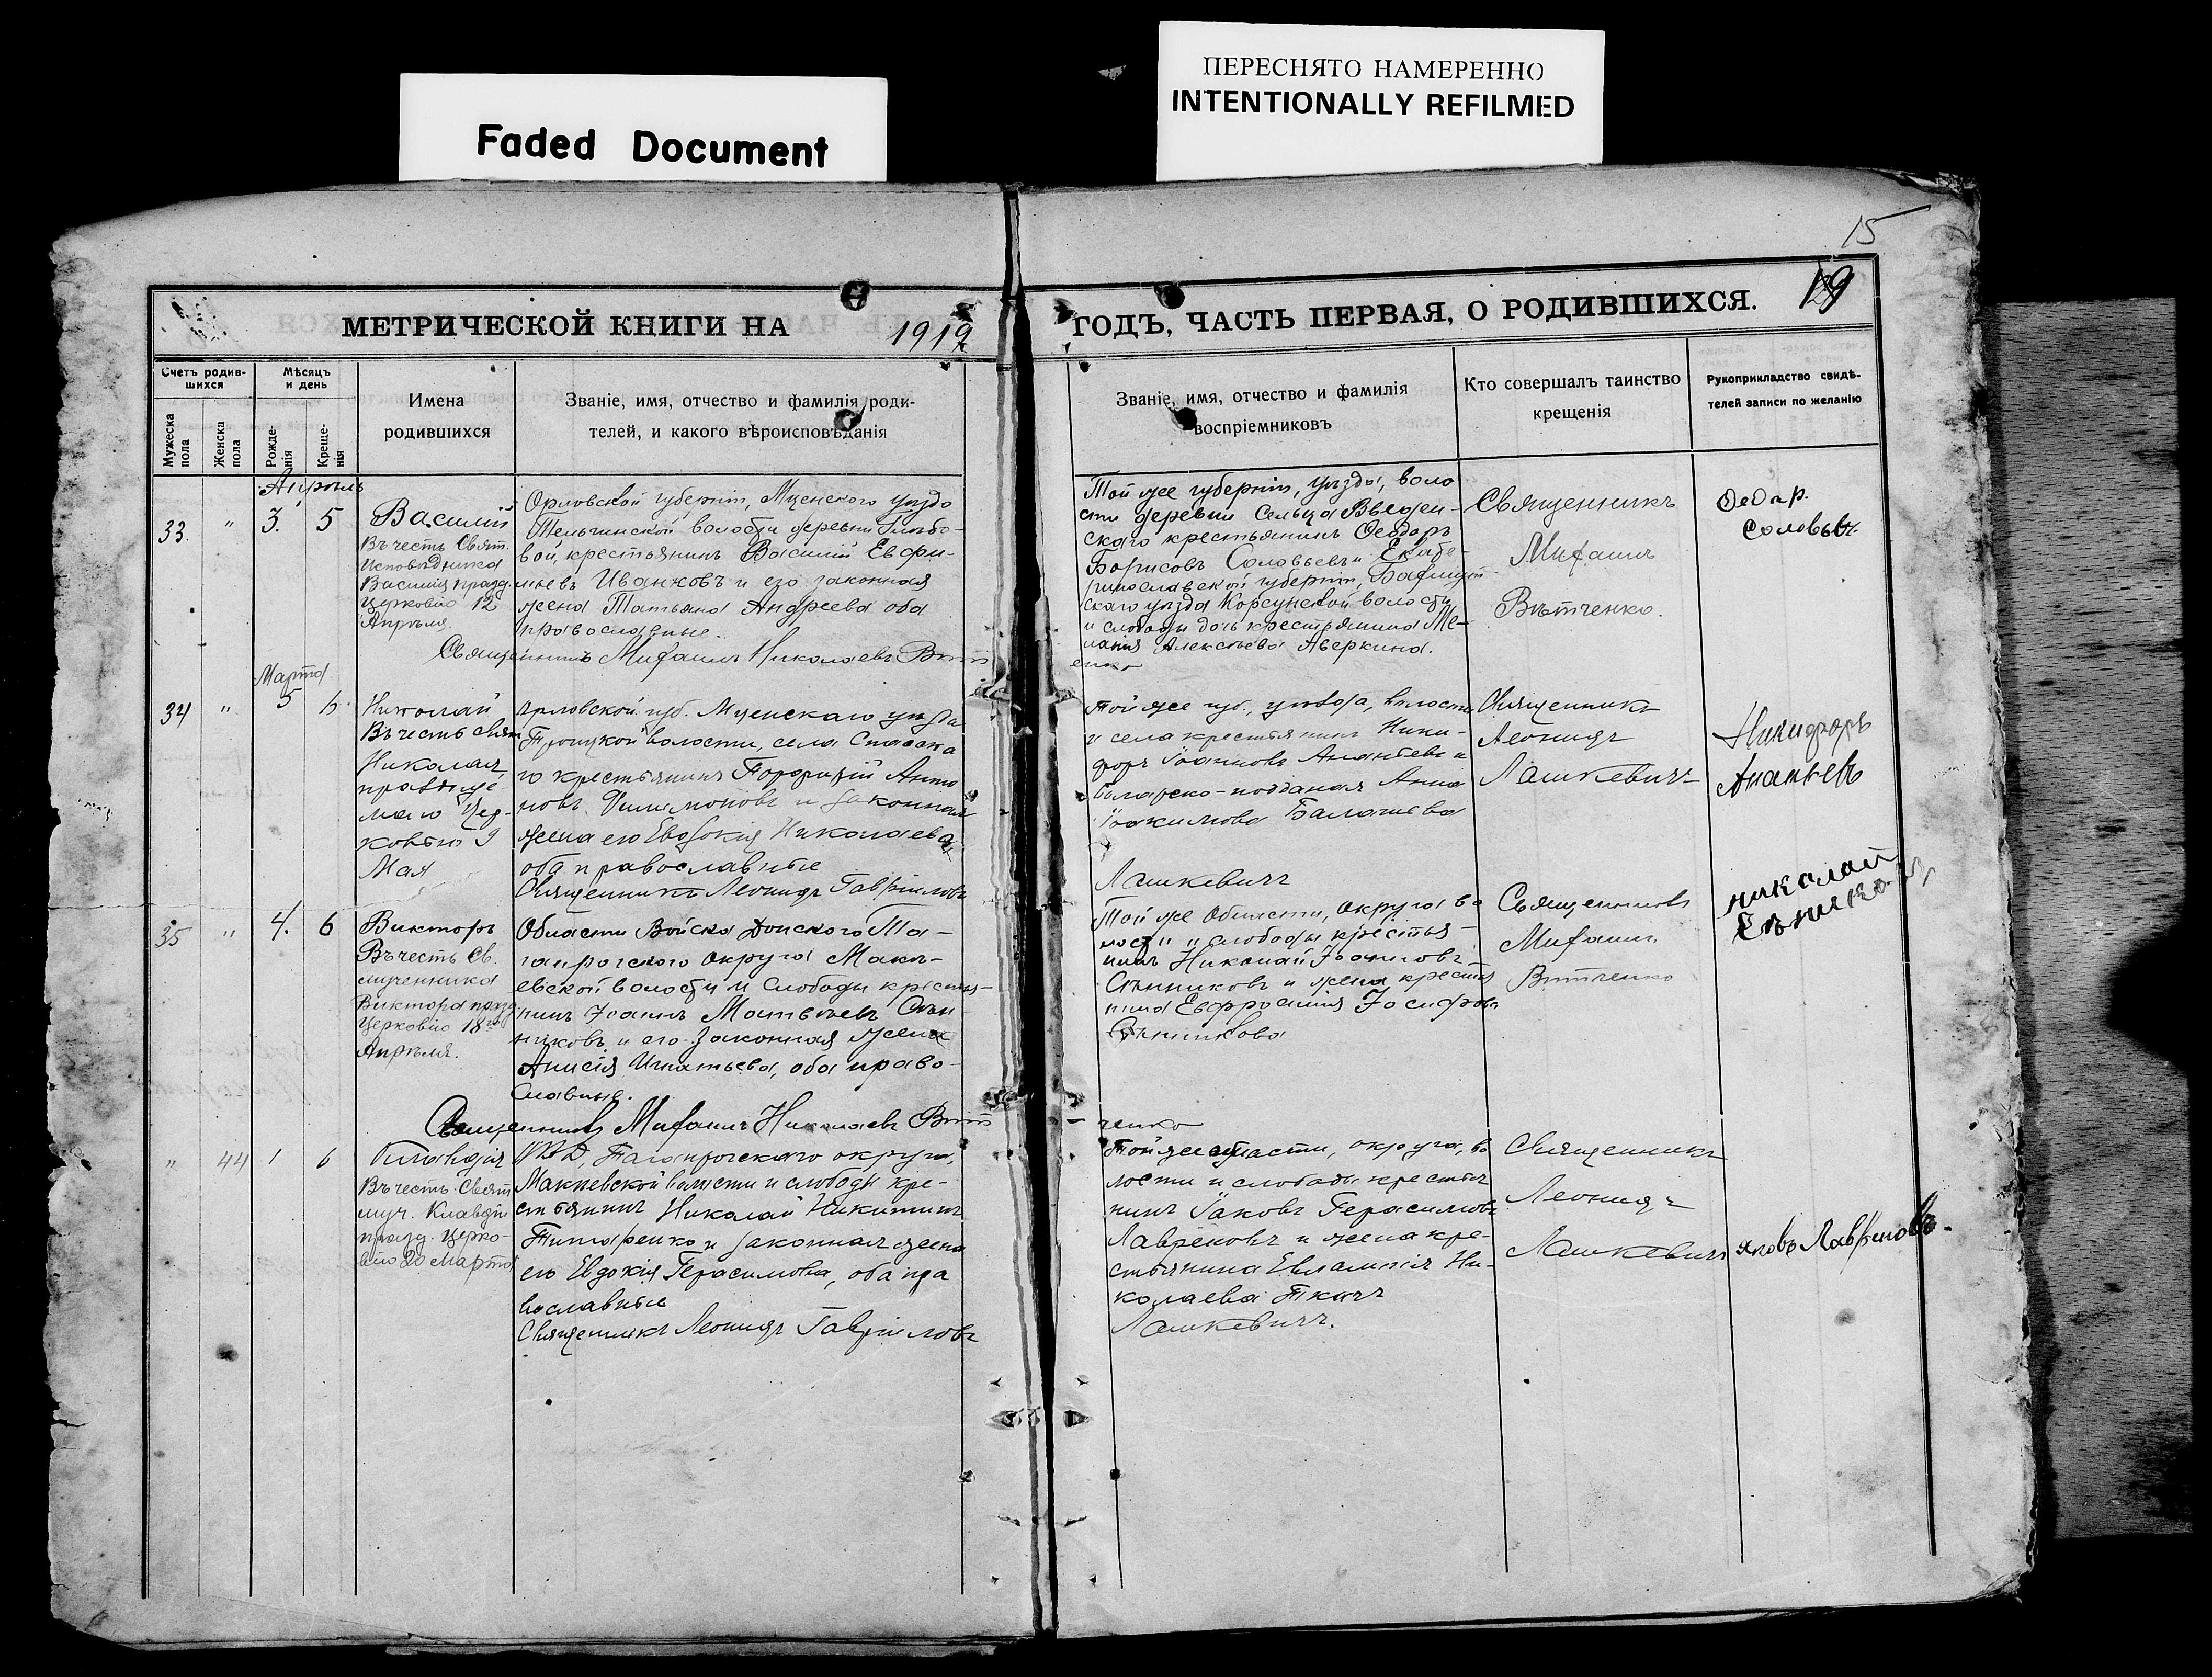 Faded Document
ПЕРЕСНЯТО НАМЕРЕННО
INTENTIONALLY REFILMED
15
19
МЕТРИЧЕСКОЙ КНИГИ НА 1912 ГОДЪ, ЧАСТЬ ПЕРВАЯ, О РОДИВШИХСЯ.
Счетъ родив-
шихся
Мужеска
пола
Женска
пола
Мѣсяцъ
и день
Рожде-
нія
Креще-
нія
Имена
родившихся
Званіе, имя, отчество и фамилія роди-
телей, и какого вѣроисповѣданія
Званіе, имя, отчество и фамилія
воспріемниковъ
Кто совершалъ таинство
крещенія
Рукоприкладство свидѣ-
телей записи по желанію
Апрѣль
33. " 3. 5
Василій
Въ честь Свят.
Исповѣдника
Василія празд.
Церковію 12
Апрѣля.
Орловской губерніи, Мценскаго уѣзда
Тельчинской волости деревни Глѣбо-
вой, крестьянинъ Василій Евфи-
мьевъ Иванковъ и его законная
жена Татьяна Андреева оба
православные.
Священникъ Михаилъ Николаевъ Вѣт
Той же губерніи, уѣзда, воло
сти деревни Сельца Введен-
скаго крестьянинъ Ѳеодоръ
Борисовъ Соловьевъ и Екате-
ринославской губерніи, Бахмут
скаго уѣзда Корсунской волости
и слободы дочь крестьянина Ме-
ланія Алексѣева Аверкина.
енко
Священникъ
Михаилъ
Вѣтченко.
Ѳедар.
Соловьв.
Марта
34 " 5 6
Николай
Въ честь свят
Николая,
праздще
маго Цер-
ковью 9
Мая
Орловской губ. Мценскаго уѣзда
Троицкой волости, села Спасска
го крестьянинъ Порфирій Анто
новъ Филимоновъ и законная
жена его Евдокія Николаева,
оба православные
Священникъ Леонидъ Гавріиловъ
той же губ., уѣзда, волости
и села крестьянинъ Ники-
форъ Іоанновъ Ананьевъ и
болгарско-подданая Анна
Іоакимова Балашева
Лашкевичъ
Священникъ
Леонидъ
Лашкевичъ
Никифоръ
Ананьевъ
35 " 4. 6
Викторъ
Въ честь Св.
мученика
Виктора празд
Церковію 18го
Апрѣля.
Области Войска Донского Та-
ганрогскаго округа Макѣ-
евской волости и слободы крестья-
нинъ Іоаннъ Матвѣевъ Сѣн
никовъ и его законная жена
Анисія Игнатьева, оба право-
славные.
Священникъ Михаилъ Николаевъ Вѣт
Той же Области, округа во
лости и слободы крестья-
нинъ Николай Іоанновъ
Сѣнниковъ и жена крестья
нина Евфросинія Іосифова
Сѣнникова
ченко
Священникъ
Михаилъ
Вѣтченко
николай
Сѣников
" 44 1 6
Клавдія
Въ честь Свят
муч. Клавдіи
празд. Церко-
вію 20 Марта
ОВД, Таганрогскаго округа,
Макѣевской волости и слободы кре-
стьянинъ Николай Никитинъ
Титаренко и законная жена
его Евдокія Герасимова, оба пра
вославные
Священникъ Леонидъ Гавріиловъ
Той же области, округа, во
лости и слободы крестья
нинъ Іаковъ Герасимовъ
Лавреновъ и жена кре-
стьянина Евлампія Ни-
колаева Ткачъ
Лашкевичъ.
Священникъ
Леонидъ
Лашкевичъ
Яковъ Лавреновъ.